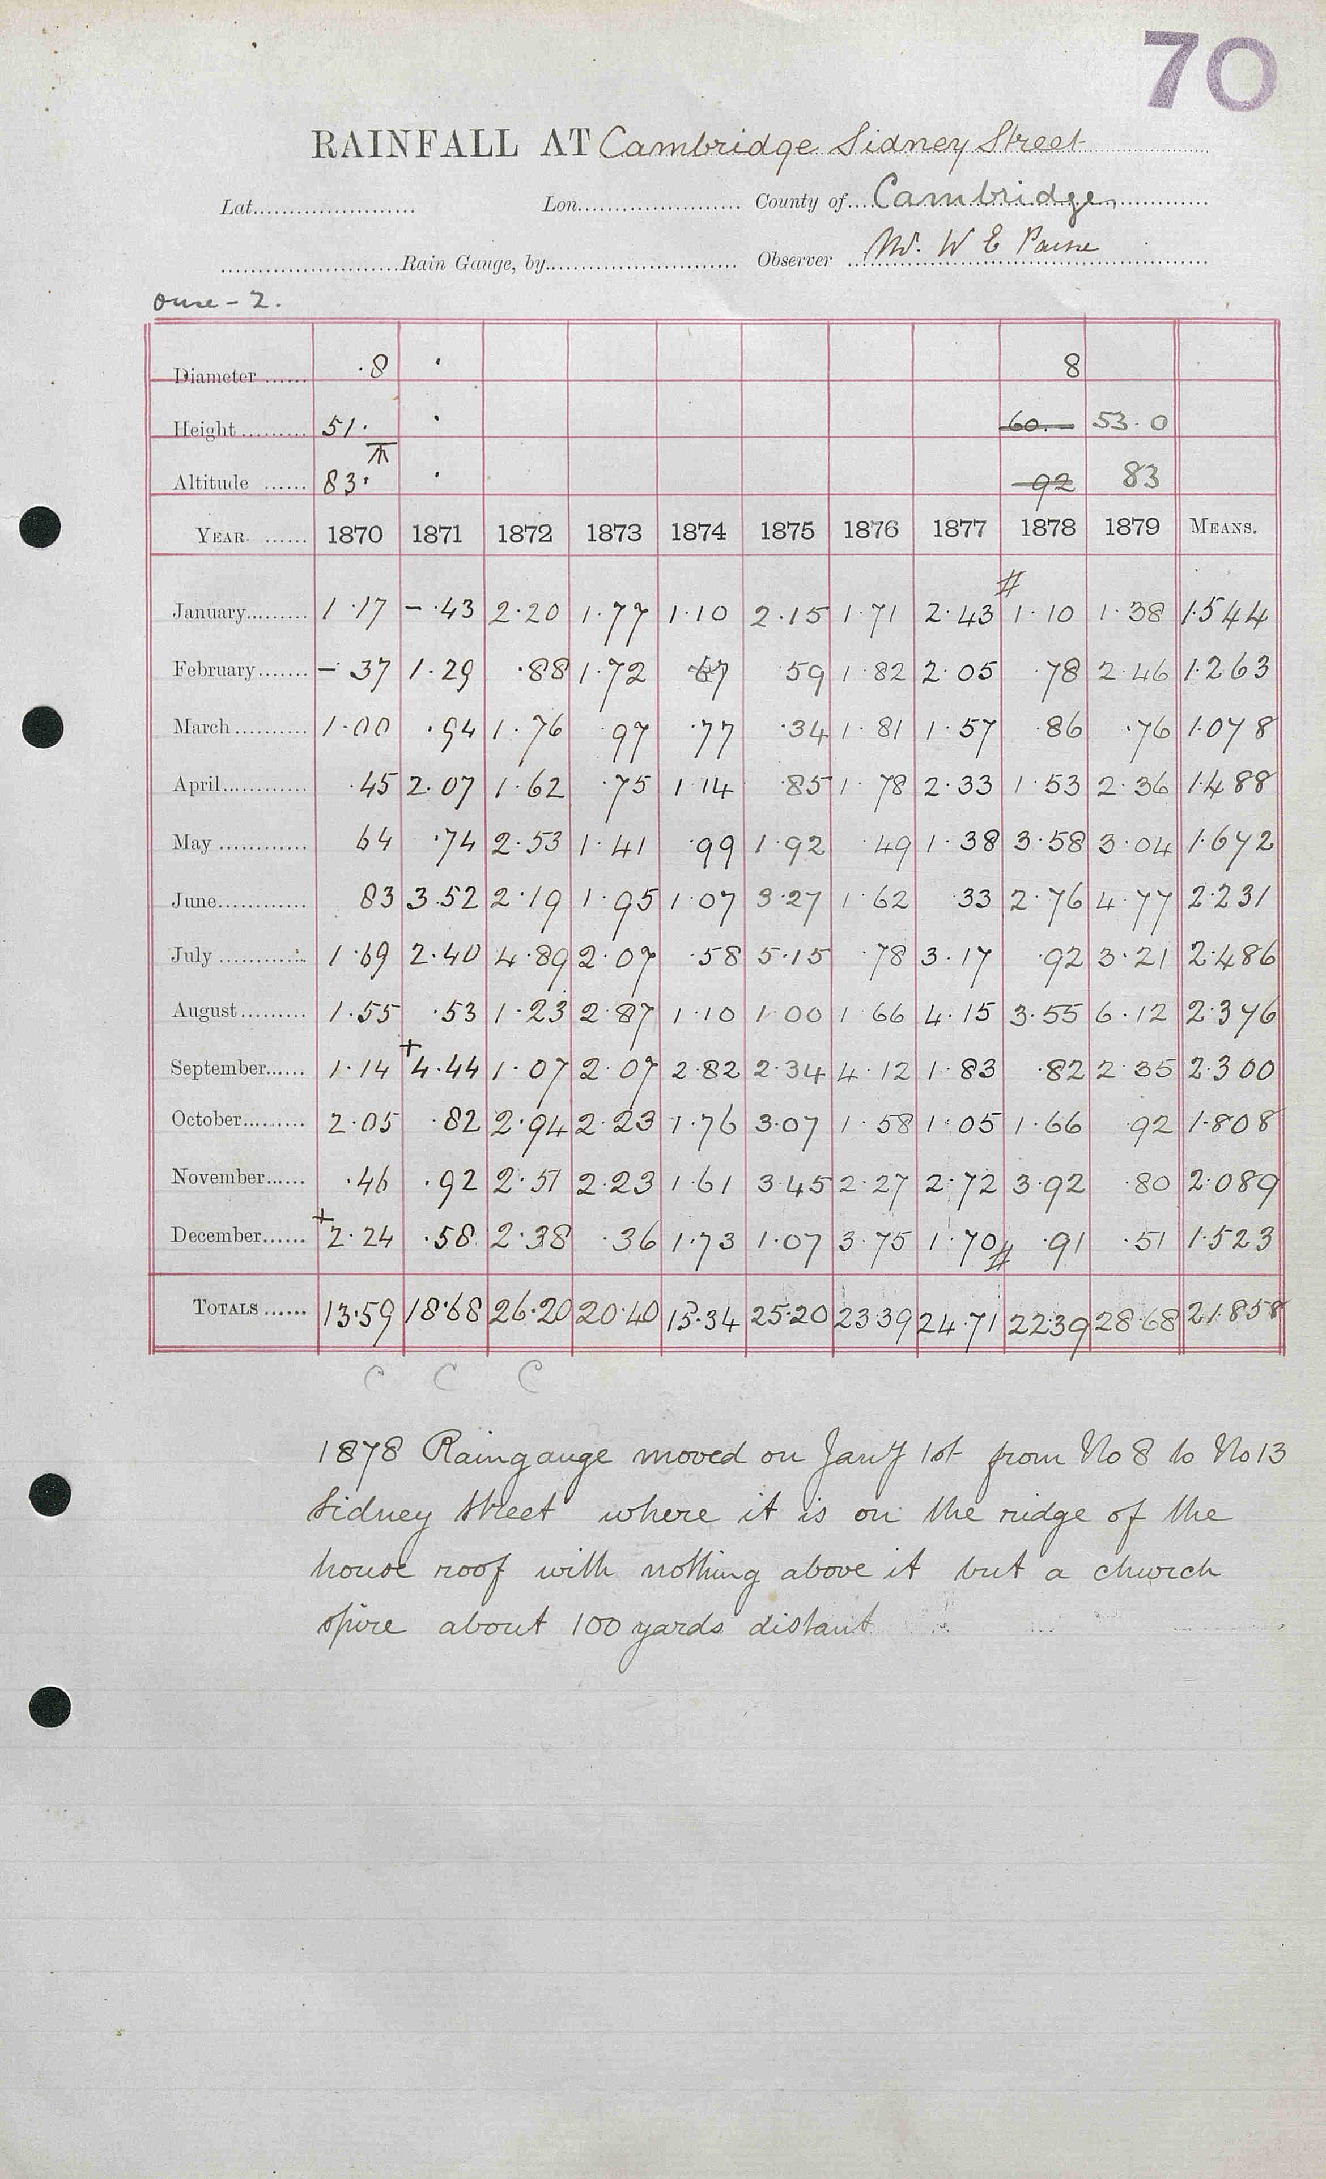 70
RAINFALL AT Cambridge Sidney Street
Lat. Lon. County of Cambridge
Rain Gauge, by Observer Mr. W E Paine
Ouse - 2.
Diameter ·8 · 8
Height 51· · 60.- 53·0
Altitude 83· · 92 83
YEAR 1870 1871 1872 1873 1874 1875 1876 1877 1878 1879 MEANS.
#
January 1·17 -·43 2·20 1·77 1·10 2·15 1·71 2·43 1·10 1·38 1·544
February -·37 1·29 ·88 1·72 67 59 1·82 2·05 ·78 2·46 1·263
March 1·00 ·94 1·76 ·97 ·77 ·34 1·81 1·57 ·86 ·76 1·078
April ·45 2·07 1·62 ·75 1·14 ·85 1·78 2·33 1·53 2·36 1·488
May 64 ·74 2·53 1·41 ·99 1·92 ·49 1·38 3·58 3·04 1·672
June 83 3·52 2·19 1·95 1·07 3·27 1·62 ·33 2·76 4·77 2·231
July 1·69 2·40 4·89 2·07 ·58 5·15 ·78 3·17 ·92 3·21 2·486
August 1·55 ·53 1·23 2·87 1·10 1·00 1·66 4·15 3·55 6·12 2·376
September 1·14 +4·44 1·07 2·07 2·82 2·34 4·12 1·83 ·82 2·35 2·300
October 2·05 ·82 2·94 2·23 1·76 3·07 1·58 1·05 1·66 ·92 1·808
November ·46 ·92 2·51 2·23 1·61 3·45 2·27 2·72 3·92 ·80 2·089
December +2·24 ·58 2·38 ·36 1·73 1·07 3·75 1·70 # ·91 ·51 1·523
TOTALS 13·59 18·68 26·20 20·40 15·34 25·20 23·39 24·71 22·39 28·68 21·858
C C C
1878 Raingauge moved on Jany 1st from No 8 to No 13
Sidney Street where it is on the ridge of the
house roof with nothing above it but a church
spire about 100 yards distant